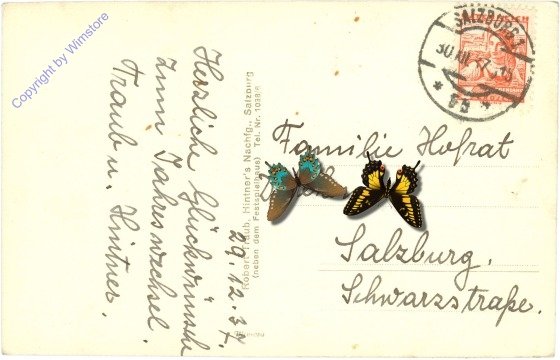 Copyright by Wimstore
Herzliche Glückwünsche
zum Jahreswechsel.
Traub u. Hintner.
29.12.37.
Robert Traub, Hintner's Nachfg., Salzburg
(neben dem Festspielhaus) Tel. Nr. 1038/8
SALZBURG 1
30.XII.37
* 5b *
Familie Hofrat
Salzburg.
Schwarzstraße.